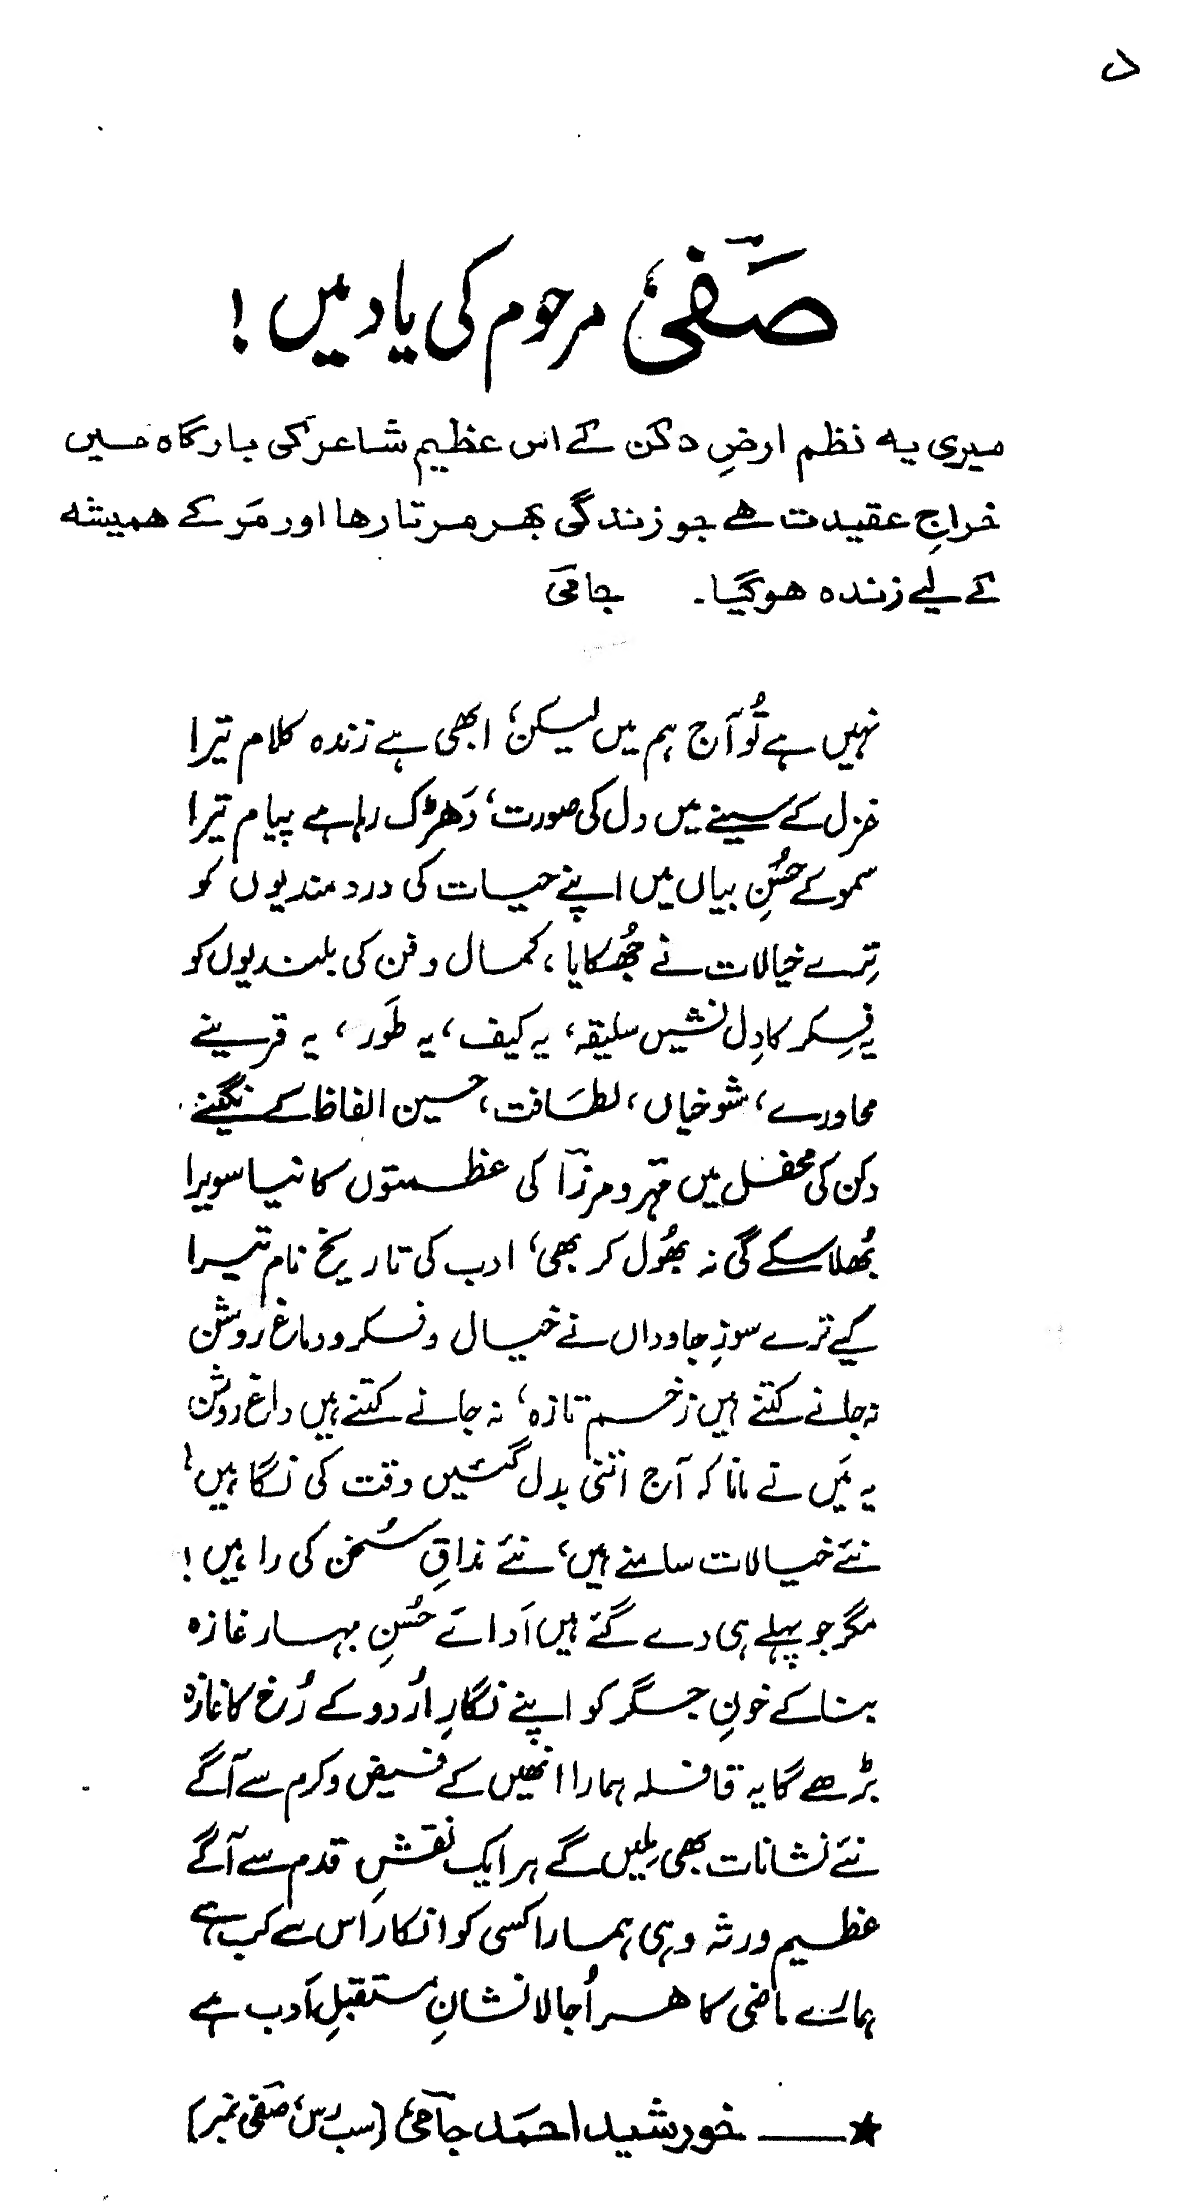 د
صفیؔ مرحوم کی یاد میں!
میری یہ نظم ارضِ دکن کے اس عظیم شاعر کی بارگاہ میں
خراجِ عقیدت ہے جو زندگی بھر مرتا رہا اور مَر کے ہمیشہ
کے لیے زندہ ہوگیا۔ جامیؔ
نہیں ہے تُو آج ہم میں لیکن، ابھی ہے زندہ کلام تیرا
غزل کے سینے میں دل کی صورت، دَھڑک رہا ہے پیام تیرا
سمو کے حسُنِ بیاں میں اپنے حیات کی درد مندیوں کو
تِرے خیالات نے جُھکایا، کمال و فن کی بلندیوں کو
یہ فِکر کا دِل نشیں سلیقہ، یہ کیف، یہ طَور، یہ قرینے
محاورے، شوخیاں، لطَافت، حسین الفاظ کے نگینے
دکن کی محفل میں مہرؔ و مرزاؔ کی عظمتوں کا نیا سویرا
بُھلا سکے گی نہ بھُول کر بھی، ادب کی تاریخ نام تیرا
کیے ترے سوزِ جاوداں نے خیال و فکر و دماغ روشن
نہ جانے کتنے ہیں زخم تازہ، نہ جانے کتنے ہیں داغ روشن
یہ مَیں نے مانا کہ آج اتنی بدل گئیں وقت کی نگاہیں،
نئے خیالات سامنے ہیں، نئے مذاقِ سُخن کی راہیں!
مگر جو پہلے ہی دے گئے ہیں اَدائے حُسنِ بہار غازہ
بنا کے خونِ جگر کو اپنے نگارِ اُردو کے رُخ کا غازہ
بڑھے گا یہ قافلہ ہمارا انھیں کے فیض و کرم سے آگے
نئے نشانات بھی مِلیں گے ہر ایک نقشِ قدم سے آگے
عظیم ورثہ وہی ہمارا کسی کو انکار اس سے کب ہے
ہمارے ماضی کا ہر اُجالا نشانِ مستقبلِ اَدب ہے
★ —— خورشید احمَد جامیؔ (سب رس، صَفی نمبر)